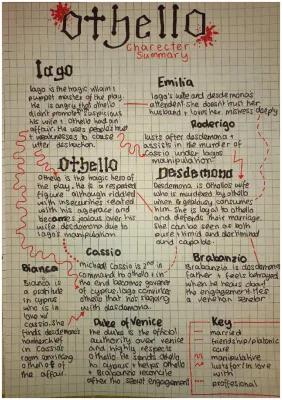 Othello
Charecter
Summary
Iago
Iago is the tragic villain +
puppet master of the play.
He is angry that othello
didn't promote suspicious
his wife + Othello had an
affair. He uses peoples trust
+ weaknesses to cause
utter destruction.
Emilia
Iago's wife and desdemonas
attendent she doesn't trust her
husband + loves her mistress deeply
Roderigo
lusts after desdemona +
assists in the murder of
Cassio under Iagos
manipulation
Othello
Othello is the tragic hero of
the play. He is a respected
figure although riddled
with insecurities related
with his age race and
becomes jealous over his
wife desdemona due to
Iagos manipulation.
Desdemona
Desdemona is Othellos' wife
who is murdered by othello
when jealousy consumes
him. She is loyal to othello
and defends their marriage.
She can be seen as both
pure + timid and determind
and capable.
Cassio
micheal Cassio is 2nd in
command to othello + in
the end becomes governer
of cyprus. Iago convinces
othello that hes sleeping
with desdemona.
Bianca
Bianca is
a prostitute
in cyprus
who is in
love w/
cassio. She
finds desdemona's
handkerchief
in Cassios
room convincing
othello of the
affair.
Brabanzio
Brabanzio is desdemonas
father + feels betrayed
when he hears about
the engagement + hes
a venetian senator
Duke of Venice
the duke is the official
authority over venice
and highly respects
othello. He sends othello
to cyprus + helps othello
+ brabanzio reconcile
after the secret engagement
Key
married
friendship/platonic
care
manipulative
lusts for/in love
with
proffesional